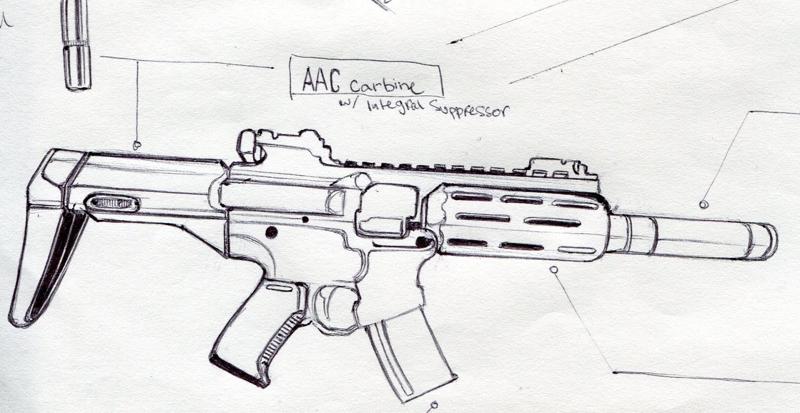 AAC carbine
w/ Integral Suppressor